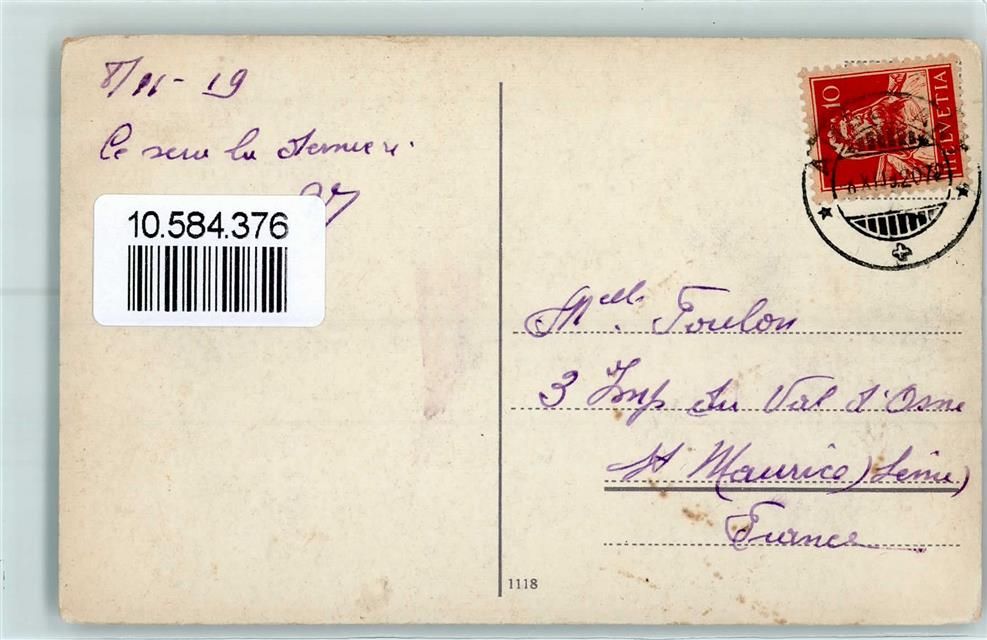 8/11 - 19
Ce sera la dernière.
10.584.376
10
HELVETIA
Melle. Toulon
3 Imp du Val d'Osne
St Maurice (Seine)
France
1118